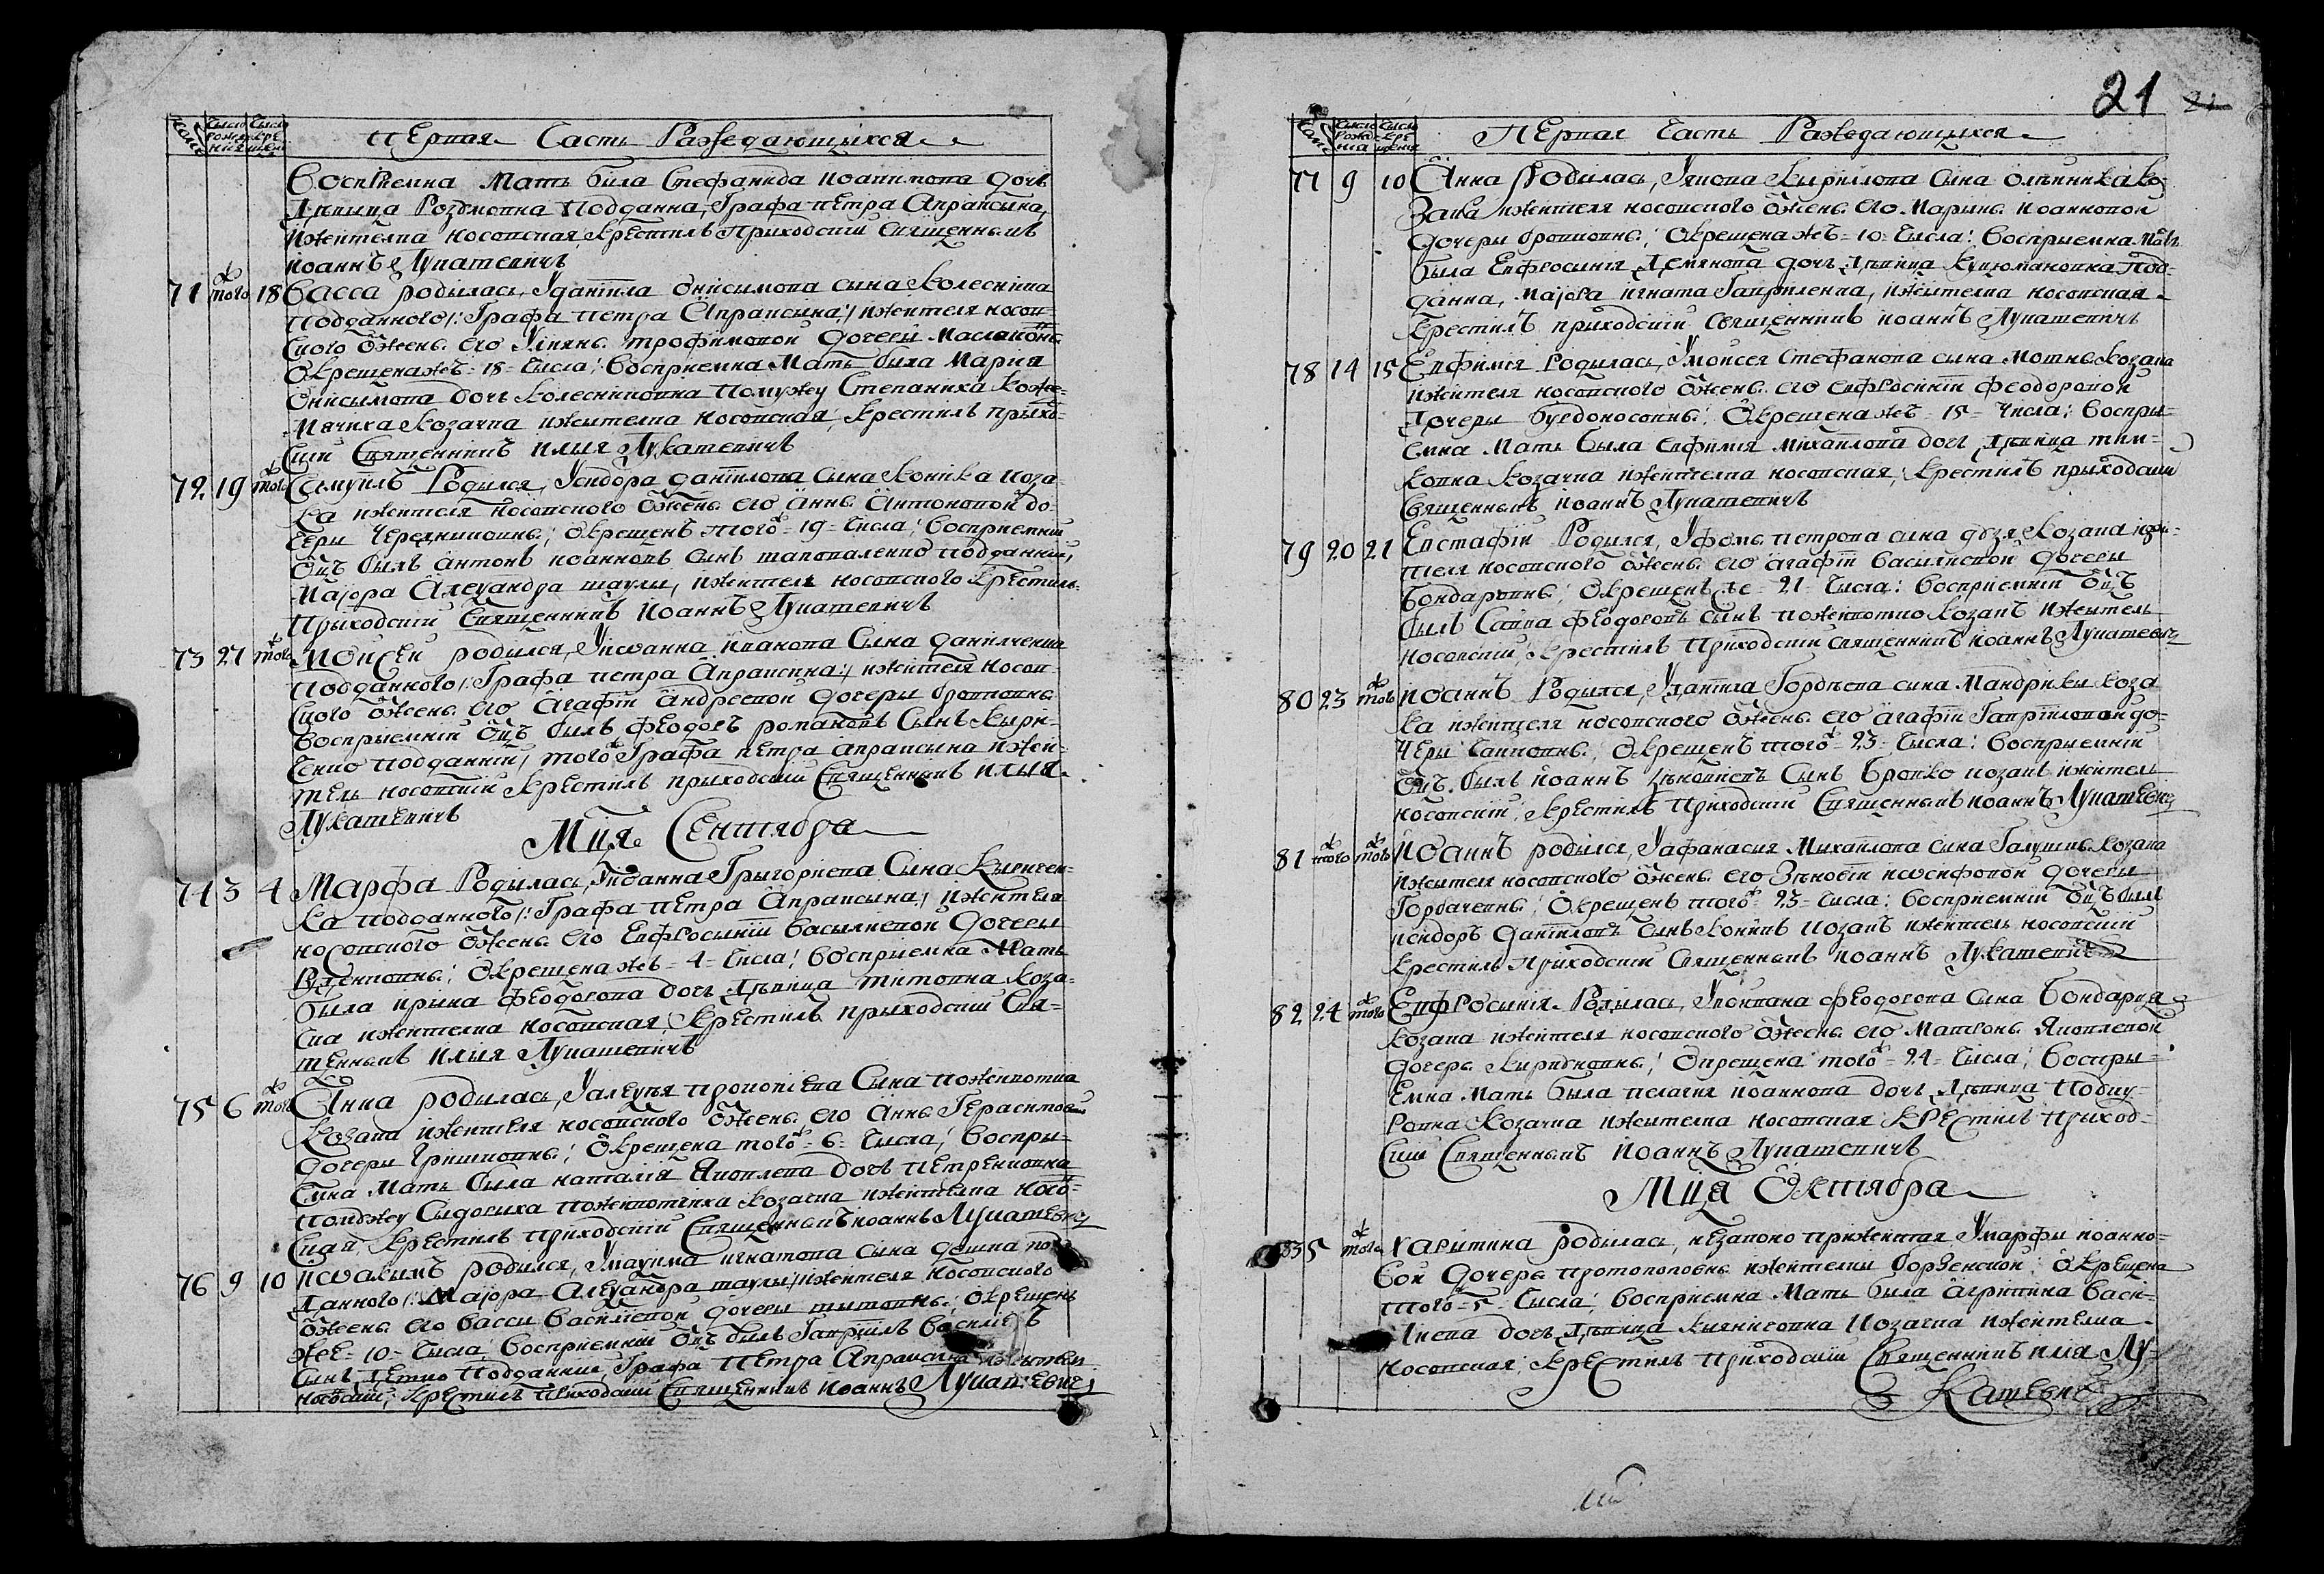 21
Первая Часть Раждающыхся
Восприемна Мать была Стефанида Иоакимова дочь
Дѣвица Поддана, Графа Петра Апраксина,
Ижителка носовская, Крестилъ Приходский Священникъ
Иоаннъ Лукашевичъ
71 того 18 Васса родилась, У Данiила Онисимова сына Колесника
Подданого /: Графа Петра Апраксина :/ ижителя носов-
ского Ѿжены его Улияны Трофимовой дочери
Окрещена жъ = 18 = Числа; Восприемна Мать была Мария
Онисимова дочь Колесниковна Помужу Степаниха Коже-
мячиха Козачка ижителка носовская; Крестилъ прихо-
ский Священникъ Илия Лукашевичъ
72 19 того Самуилъ Родился, У сидора данiилова сына Коника коза-
ка ижителя носовского Ѿжены его Анны Антоновой до-
чери Чередниковны; Окрещенъ того = 19 = Числа; Восприемний
Ѿцъ былъ Антонъ Иоанновъ сынъ подданний,
Маjора Алеѯандра шаулы, ижителя носовского Крестилъ
Приходский Священникъ Иоаннъ Лукашевичъ
73 27 того Моисей родился, У иоанна Иванова Сына Данилченка
Подданного /: Графа Петра Апраксина :/ ижителя носов-
ского Ѿжены его Агафiи Андреевой дочери
Восприемний Ѿцъ былъ Феодоръ Романовъ Сынъ Кири-
ченко подданний, того Графа Петра Апраксина ижи-
тель носовский Крестилъ приходский Священникъ Илия
Лукашевичъ
Мця Сентября
74 3 4 Марфа Родилась, У иоанна Григориева Сына Кыричен-
ка подданного /: Графа Петра Апраксина :/ ижителя
носовского Ѿжены его Евфросинiи Василиевой дочери
Окрещена жъ = 4 = Числа; Восприемна Мать
была ирина Феодорова дочь дѣвица Титовна Коза-
чка ижителка носовская, Крестилъ приходский Свя-
щенникъ Илия Лукашевичъ
75 6 того Анна родилась, У алеѯѣя Прокопiева Сына
Козака ижителя носовского Ѿжены его Анны Герасимовой
дочери Гришковны; Окрещена того = 6 = Числа; Воспри-
емна Мать была наталiя Яковлева дочь Петренковна
помужу Сидориха Козачка ижителка носо-
вская, Крестилъ приходский Священникъ Иоаннъ Лукашевичъ
76 9 10 Иоакимъ родился, У маѯима игнатова сына под-
данного /: Маjора Алеѯандра шаулы :/ ижителя Носовского
Ѿжены его Вассы Василiевой дочери Титовны; Окрещенъ
же = 10 = Числа; Восприемний Ѿцъ былъ Гаврiилъ Василиевъ
Сынъ подданний, Графа Петра Апраксина ижитель
носовский; Крестилъ Приходский Священникъ Иоаннъ Лукашевичъ
Первая Часть Раждающыхся
77 9 10 Анна Родилась, У якова Кирилова Сына Олѣйника Ко-
зака ижителя носовского Ѿжены его Марины Иоанновой
дочери; Окрещена жъ = 10 = Числа; Восприемна Мать
была Евфросиния Демянова дочь дѣвица под-
данна, Маjора игната Гавриленка, ижителка носовская
Крестилъ приходский Священникъ Иоаннъ Лукашевичъ
78 14 15 Евфимiя Родилась, У моисея Стефанова сына Козака
ижителя носовского Ѿжены его Евфросинiи Феодоровой
дочери; Окрещена жъ = 15 = Числа; Воспри-
емна Мать была Евфимiя Михайлова дочь дѣвица Тим-
ковна Козачка ижителка носовская; Крестилъ приходский
Священникъ Иоаннъ Лукашевичъ
79 20 21 Евстафий Родился, У фомы Петрова сына Козака ижи-
теля носовского Ѿжены его Агафiи Василиевой дочери
Бондаровны; Окрещенъ же = 21 = Числа; Восприемний Ѿцъ
былъ Савва Феодоровъ сынъ Козакъ ижитель
носовский; Крестилъ Приходский Священникъ Иоаннъ Лукашевичъ
80 23 того Иоаннъ Родился, У данiила Гордѣева сина Мандрики коза-
ка ижителя носовского Ѿжены его Агафiи Гаврiиловой до-
чери; Окрещенъ того = 23 = Числа; Восприемний
Ѿцъ былъ Иоаннъ Сынъ Бровко козакъ ижитель
носовский; Крестилъ Приходский Священникъ Иоаннъ Лукашевичъ
81 того того Иоаннъ родился, У афанасия Михайлова сына Галушки Козака
ижителя носовского Ѿжены его Зѣновiи иосифовой дочери
Горбачевны; Окрещенъ того = 23 = Числа; восприемний Ѿцъ былъ
исидоръ данiиловъ сынъ Коникъ козакъ ижитель носовский
Крестилъ Приходский Священникъ Иоаннъ Лукашевичъ
82 24 того Евфросиния Родилась, Феодорова Сына Бондаря
Козака ижителя носовского Ѿжены его Матроны Яковлевой
дочери; Окрещена того = 24 = Числа; Воспри-
емна Мать была Пелагия Иоаннова дочь дѣвица
Козачка ижителка носовская Крестилъ Приход-
ский Священникъ Иоаннъ Лукашевичъ
Мця Октября
83 5 того Харитина родилась, незаконо прижитая У марфы Иоанно-
вой Дочери Протопоповны ижителки борзенской; Окрещена
того = 5 = Числа; Восприемна Мать была Агрипина Васи-
лиева дочь дѣвица Козачка ижителка
носовская; Крестилъ Приходский Священникъ илия Лу-
кашевичъ